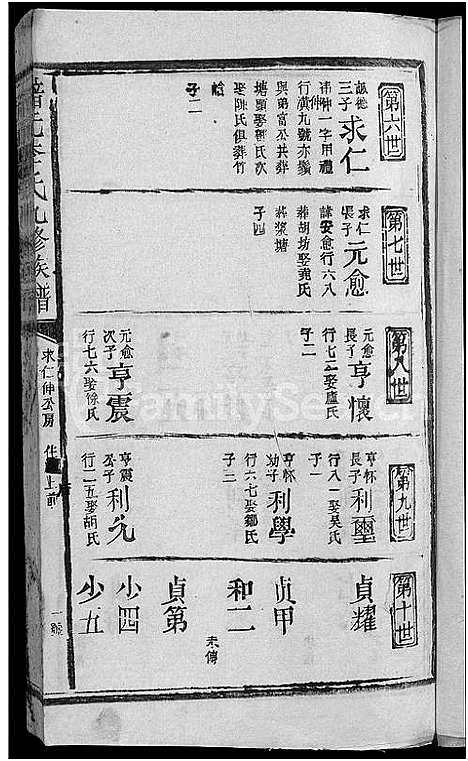 第六世
三子
求仁
諱伸一字用禮
行演九號亦鬚
與弟富公共葬
塘頭娶郭氏次
娶陳氏俱葬竹
子二
第七世
求仁
長子
元愈
諱安愈行六八
葬胡坊娶龍氏
葬漿塘
子四
第八世
元愈
長子
亨懷
行七二娶盧氏
子二
元愈
次子
亨震
行七六娶徐氏
第九世
亨懷
長子
利璽
行八一娶吳氏
子一
亨懷
幼子
利學
行六七娶鄒氏
子三
亨震
公子
利允
行二五娶胡氏
第十世
貞耀
貞甲
和二
未傳
貞第
少四
少五
氏九修族譜
求仁伸公房
上前
一號
FamilySearch